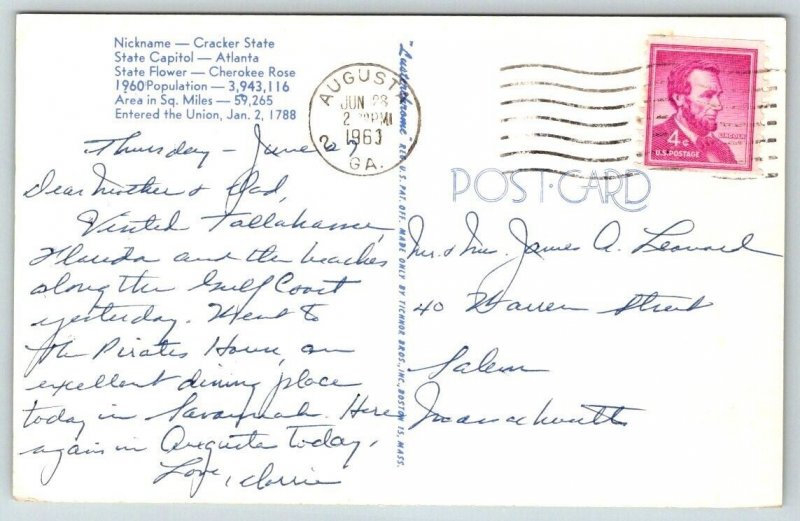 Nickname — Cracker State
State Capitol — Atlanta
State Flower — Cherokee Rose
1960 Population — 3,943,116
Area in Sq. Miles — 59,265
Entered the Union, Jan. 2, 1788
Thursday - June 27
Dear Mother & Dad,
Visited Tallahassee,
Florida and the beaches
along the Gulf Coast
yesterday. Went to
the Pirates House, an
excellent dining place
today in Savannah. Here
again in Augusta today,
Love,
"Lusterchrome" REG. U.S. PAT. OFF. MADE ONLY BY TICHNOR BROS., INC., BOSTON 15, MASS.
AUGUSTA
JUN 28
2 PM
1963
GA.
4¢
LINCOLN
U.S. POSTAGE
POST CARD
Mr. & Mrs. James A. Leonard
40 Warren Street
Salem
Massachusetts